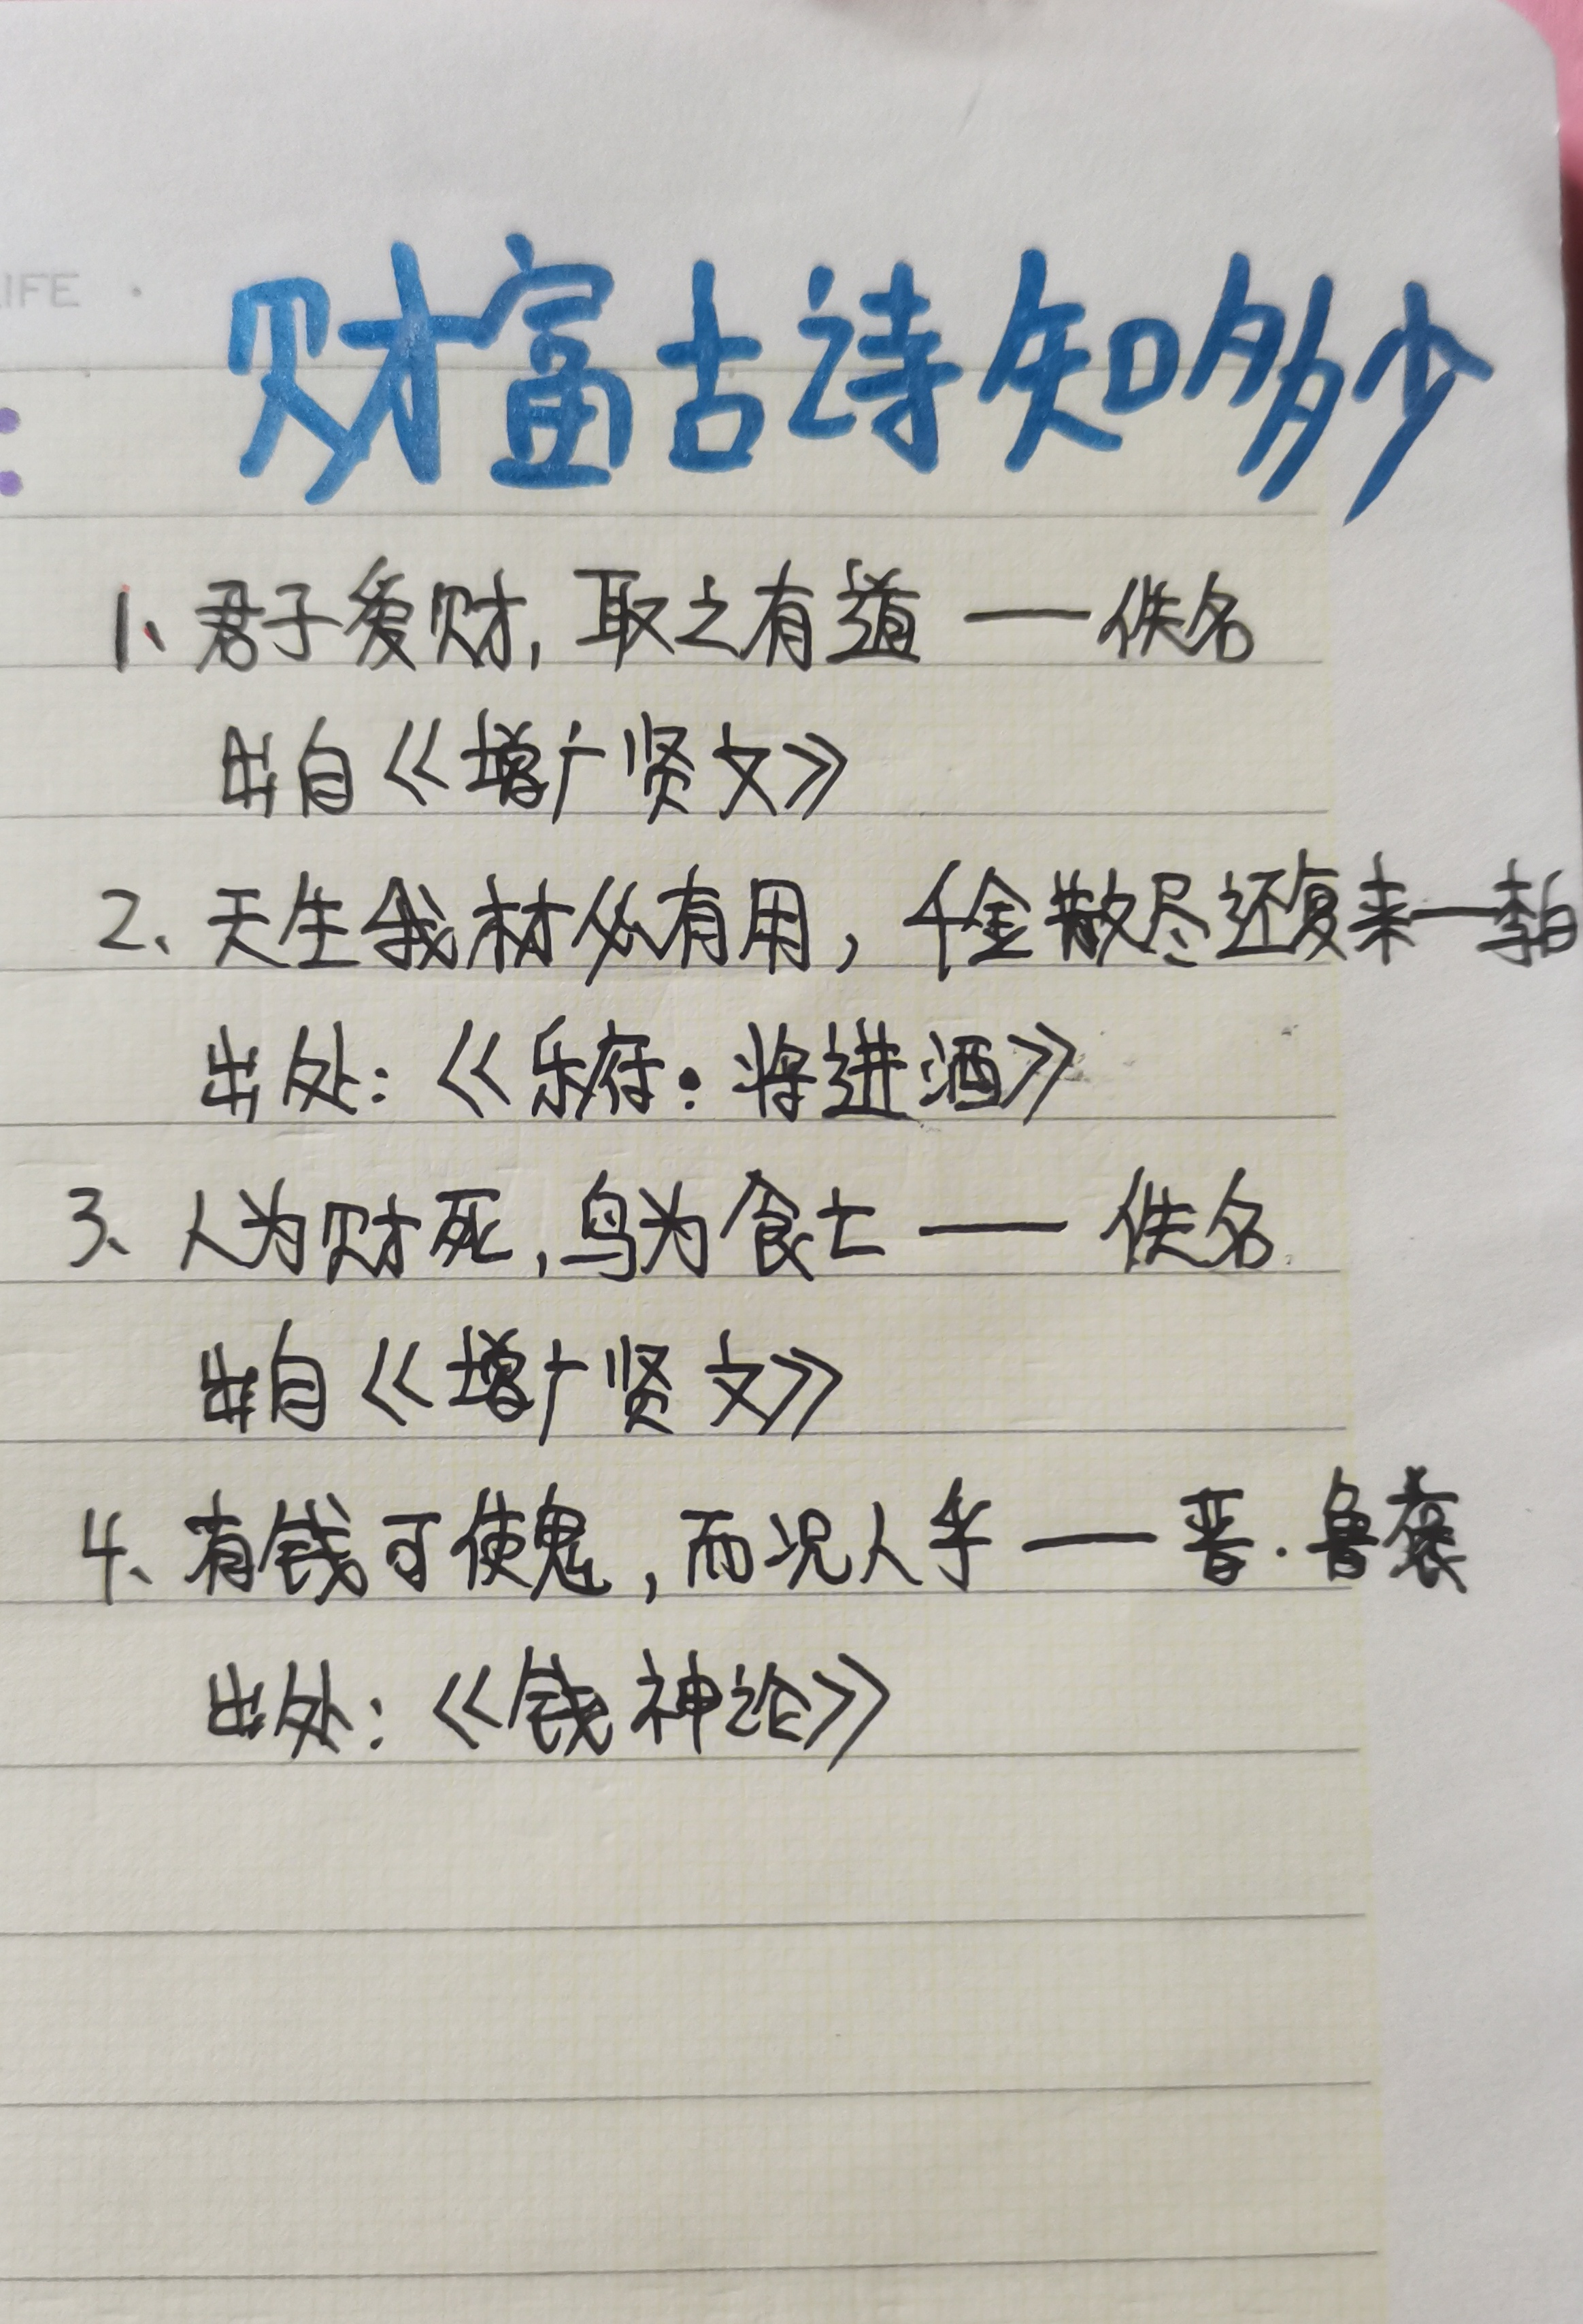 IFE
财富古诗知多少
1、君子爱财，取之有道——佚名
出自《增广贤文》
2、天生我材必有用，千金散尽还复来—李白
出处：《乐府·将进酒》
3、人为财死，鸟为食亡——佚名
出自《增广贤文》
4、有钱可使鬼，而况人乎——晋·鲁褒
出处：《钱神论》